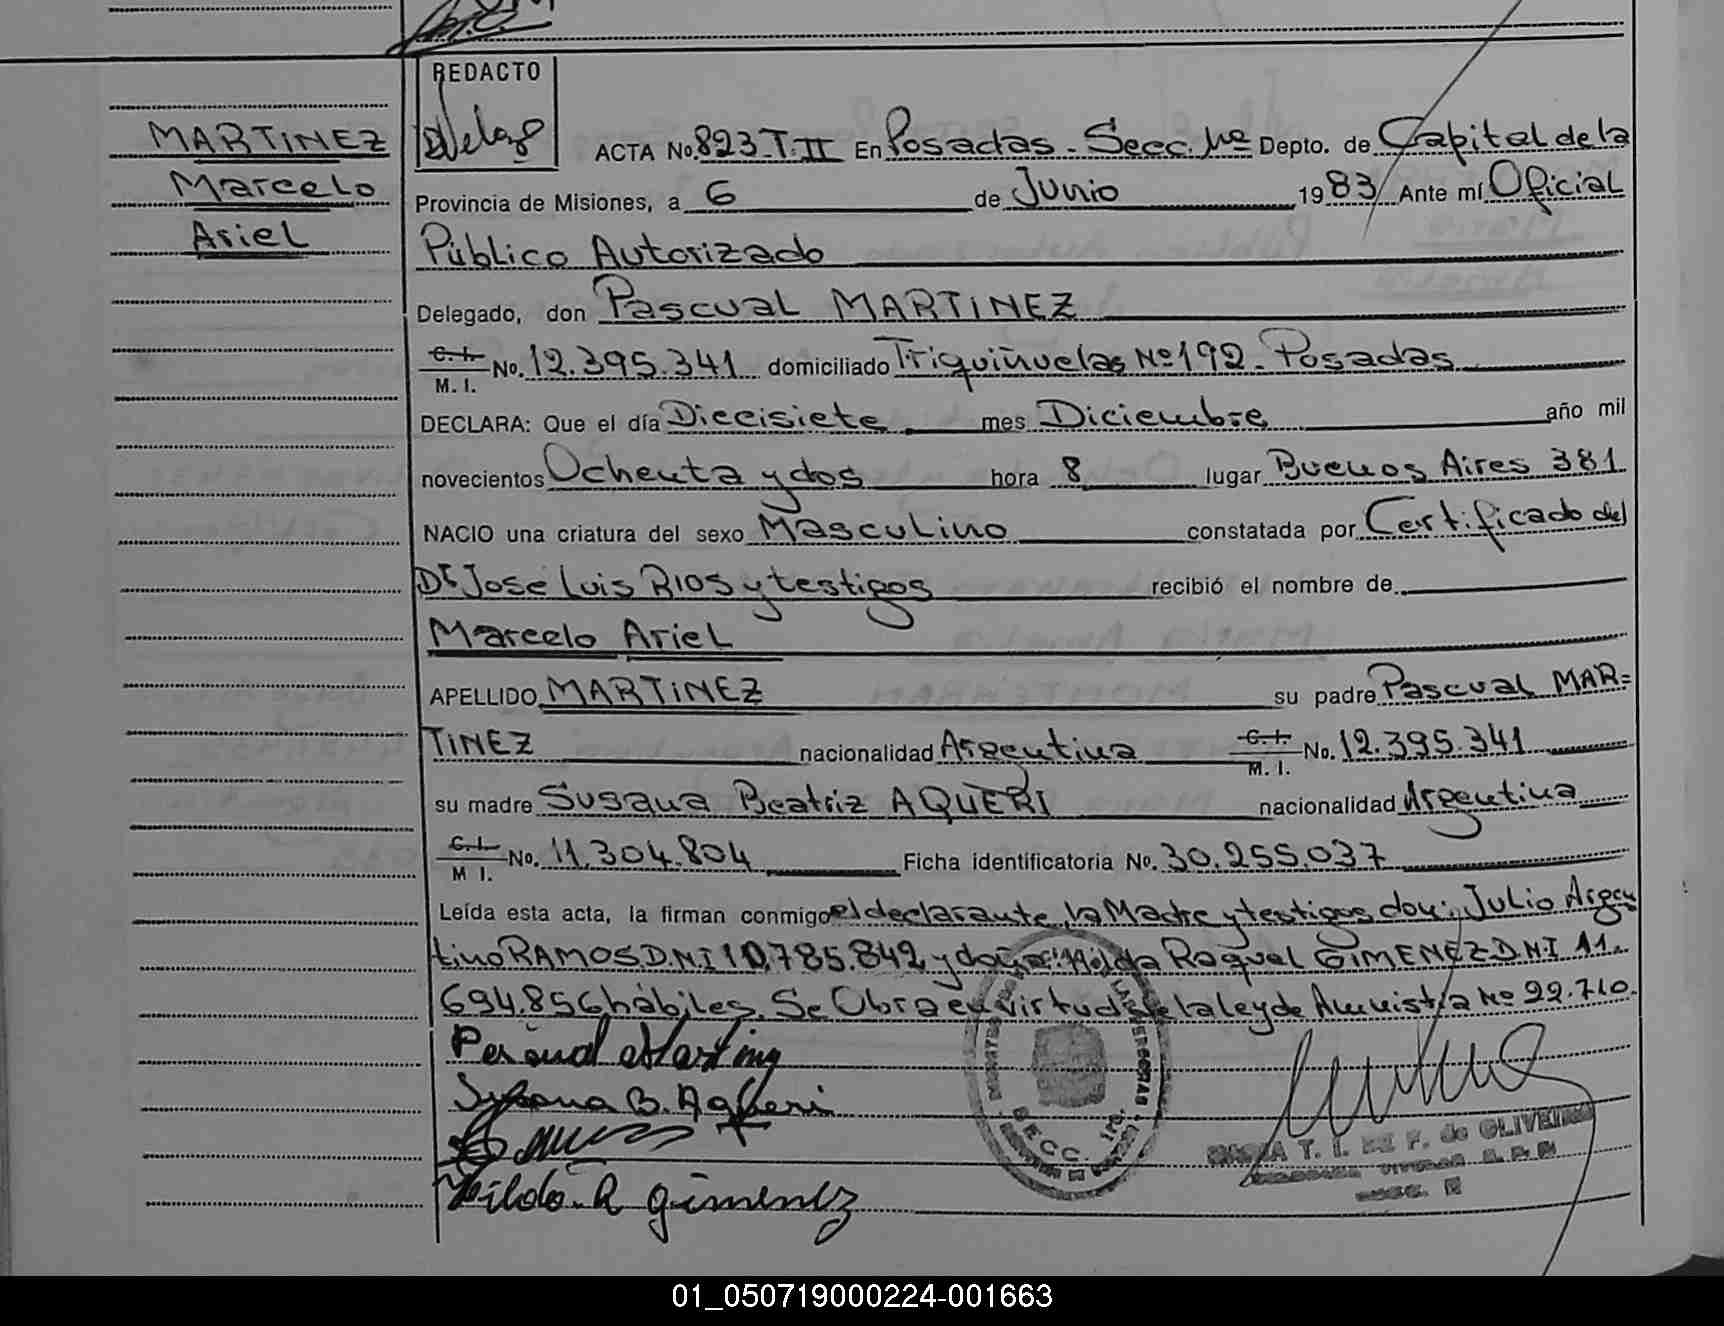 REDACTO
MARTINEZ
Marcelo
Ariel
ACTA No. 823-T.II En Posadas - Secc. 1ª Depto. de Capital de la
Provincia de Misiones, a 6 de Junio 1983 Ante mí Oficial
Público Autorizado
Delegado, don Pascual MARTINEZ
C. I. M. I. No. 12.395.341 domiciliado Triquiñuelas Nº 192 - Posadas
DECLARA: Que el día Diecisiete mes Diciembre año mil
novecientos Ochenta y dos hora 8 lugar Buenos Aires 381
NACIO una criatura del sexo Masculino constatada por Certificado del
Dr José Luis RIOS y testigos recibió el nombre de
Marcelo Ariel
APELLIDO MARTINEZ su padre Pascual MAR=
TINEZ nacionalidad Argentina C. I. M. I. No. 12.395.341
su madre Susana Beatriz AQUERI nacionalidad Argentina
C. I. M I. No. 11.304.804 Ficha identificatoria No. 30.255.037
Leída esta acta, la firman conmigo el declarante, la Madre y testigos don: Julio Argen
tino RAMOS D.N.I 10.785.842 y doña: Hilda Raquel GIMENEZ D.N.I 11.
694.856 hábiles. Se Obra en virtud de la ley de Amnistia Nº 22.710.
Pascual Martinez
Susana B. Aqueri
Hilda R Gimenez
SECC. 1ra.
T. I. DE F. de OLIVEIRA
01_050719000224-001663